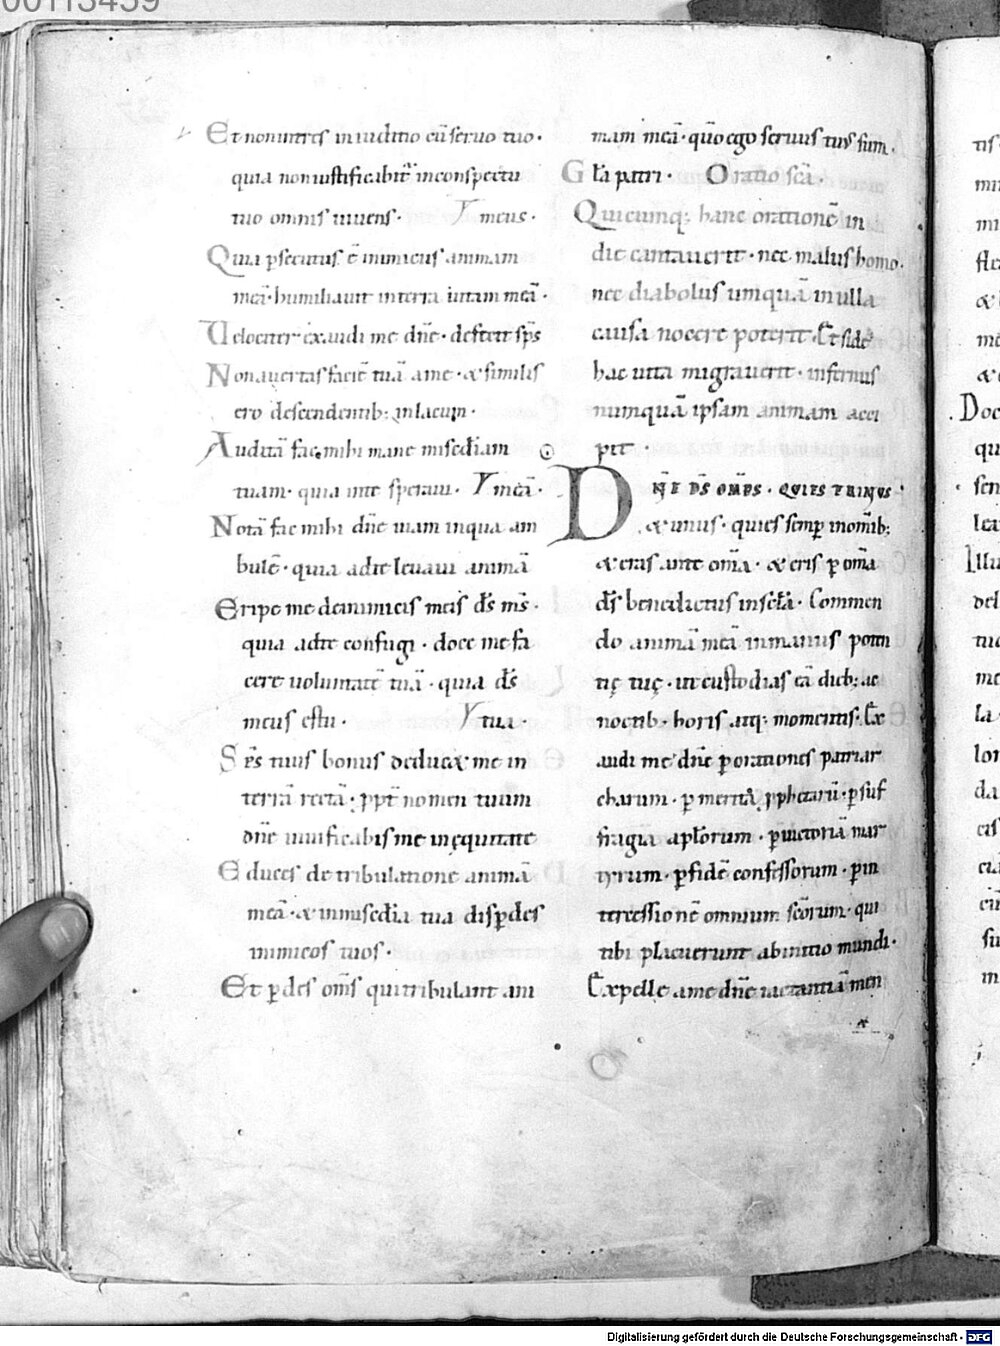 00113459
Et nonintres iniuditio cū seruo tuo·
quia noniustificabit̄ inconspectu
tuo omnis uiuens· Y meus·
Quia ꝑsecutus ē inimicus animam
meā· humiliauit interra uitam meā·
Uelociter exaudi me dn̄e· defecit sp̄s
Nonauertas faciē tuā ame· & similis
ero descendentib; inlacum·
Auditā fac mihi mane misc̄diam
tuam· quia inte speraui· Y meā·
Notā fac mihi dn̄e uiam inqua am
bulē· quia adte leuaui animā
Eripe me deinimicis meis ds̄ ms̄·
quia adte confugi· doce me fa
cere uoluntatē tuā· quia ds̄
meus estu· Y tua·
Sp̄s tuus bonus deducæ me in
terrā rectā· ꝓpt̄ nomen tuum
dn̄e uiuificabis me inęquitate
Educes detribulatione animā
meā· & inmisc̄dia tua disꝑdes
inimicos tuos·
Et ꝑdes om̄s quitribulant ani
mam meā· qūo ego seruus tuus sum·
Gl̄a patri· Oratio sc̄a·
Quicumq; hanc orationē in
die cantauerit· nec malus homo·
nec diabolus umquā inulla
causa nocere poterit· Et side
hac uita migrauerit· infernus
numquā ipsam animam acci
pit·
DN̄E DS̄ OM̄PS· QUIES TRINUS
& unus· quies semꝑ inom̄ib;
& eras ante om̄a· & eris ꝑ om̄a
ds̄ benedictus insc̄la· Commen
do animā meā inmanus poten
tię tuę· ut custodias eā dieb; ac
noctib· horis atq; momentis· Ex
audi me dn̄e ꝑ orationes patriar
charum· ꝑ merita ꝓphetarū· ꝑ suf
fragia apl̄orum· ꝑ uictoriā mar
tyrum· ꝑ fidē confessorum· ꝑ in
tercessionē omnium sc̄orum· qui
tibi placuerunt abinitio mundi·
Expelle ame dn̄e iactantiā men
Digitalisierung gefördert durch die Deutsche Forschungsgemeinschaft - DFG